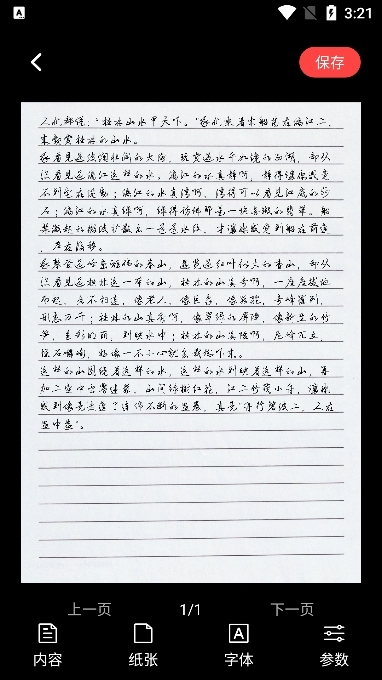 3:21
保存
人们都说："桂林山水甲天下。"我们乘着木船荡在漓江上，
来观赏桂林的山水。
我看见过波澜壮阔的大海，玩赏过水平如镜的西湖，却从
没看见过漓江这样的水。漓江的水真静啊，静得让你感觉
不到它在流动；漓江的水真清啊，清得可以看见江底的沙
石；漓江的水真绿啊，绿得仿佛那是一块无瑕的翡翠。船
桨激起的微波扩散出一道道水纹，才让你感觉到船在前进
，岸在后移。
我攀登过峰峦雄伟的泰山，游览过红叶似火的香山，却从
没看见过桂林这一带的山，桂林的山真奇啊，一座座拔地
而起，各不相连，像老人，像巨象，像骆驼，奇峰罗列，
形态万千；桂林的山真秀啊，像翠绿的屏障，像新生的竹
笋，色彩明丽，倒映水中；桂林的山真险啊，危峰兀立，
怪石嶙峋，好像一不小心就会栽倒下来。
这样的山围绕着这样的水，这样的水倒映着这样的山，再
加上空中云雾迷蒙，山间绿树红花，江上竹筏小舟，让你
感到像是走进了连绵不断的画卷，真是"舟行碧波上，人在
画中游"。
上一页 1/1 下一页
内容 纸张 字体 参数